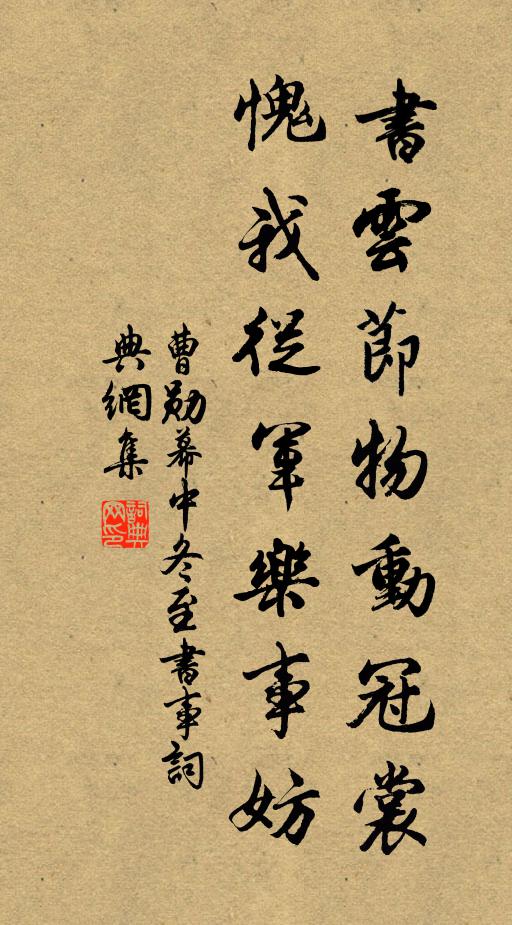 書雲節物動冠裳
愧我從軍樂事妨
曹勛幕中冬至書事詞
典網集
詞典
网印